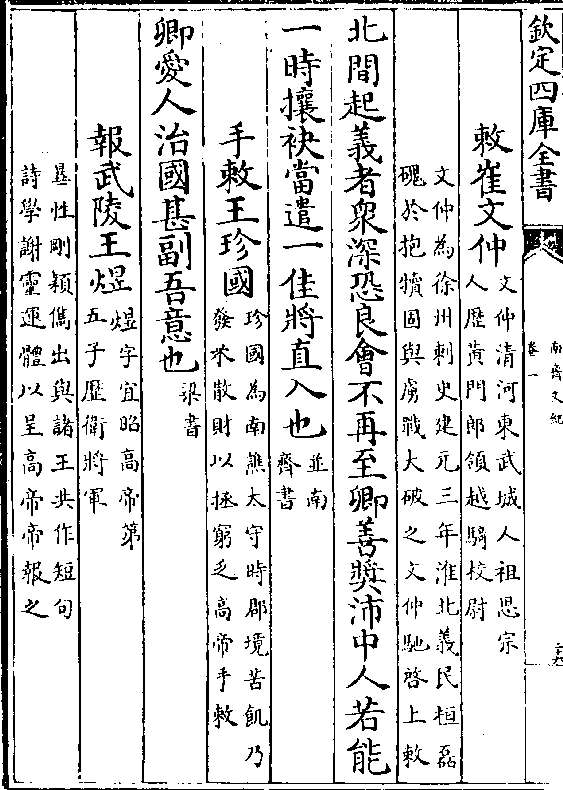 欽定四庫全書
南齊文紀
卷一
敕崔文仲
文仲清河東武城人祖思宗
人歷黃門郎領越騎校尉
文仲為徐州刺史建元三年淮北義民桓磊
磈於抱犢固與虜戰大破之文仲馳啓上敕
北間起義者衆深恐良會不再至卿善奬沛中人若能
一時攘袂當遣一佳將直入也
並南
齊書
手敕王珍國
珍國為南譙太守時郡境苦飢乃
發米散財以拯窮乏高帝手敕
卿愛人治國甚副吾意也
梁書
報武陵王煜
煜字宜昭高帝第
五子歷衛將軍
曅性剛穎儁出與諸王共作短句
詩學謝靈運體以呈高帝帝報之